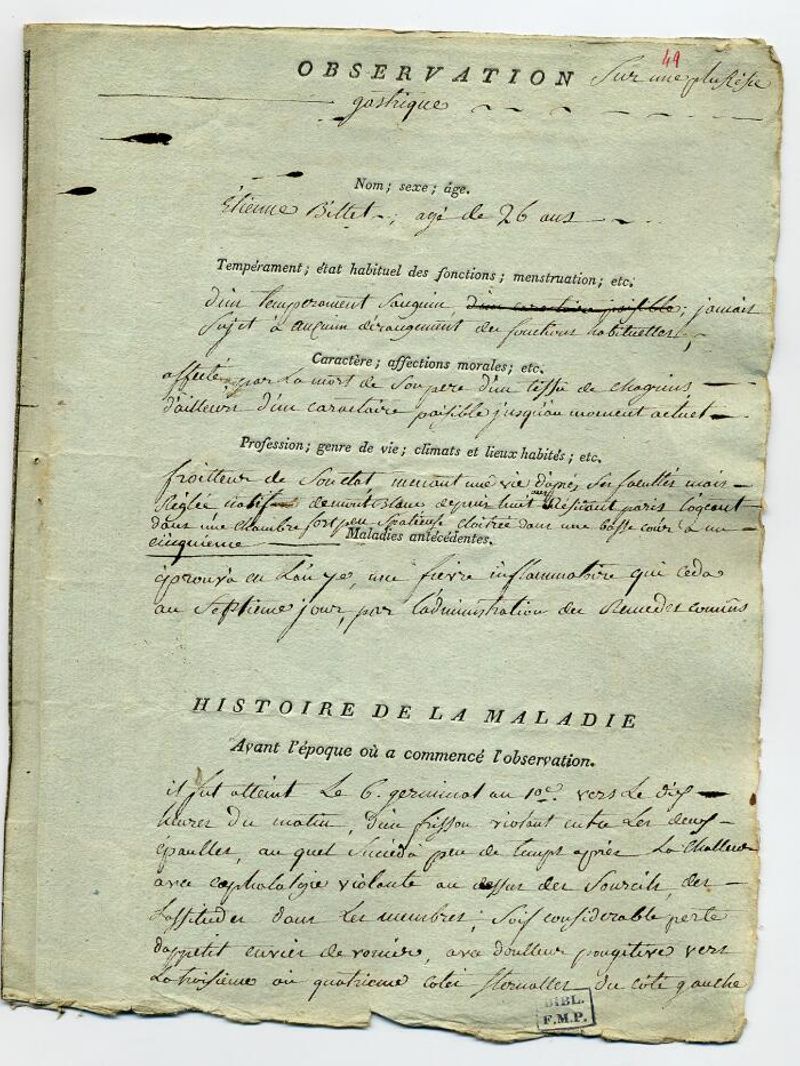 49
OBSERVATION Sur une plurésie
gastrique
Nom; sexe; âge.
Étienne Billet; agé de 26 ans
Tempérament; état habituel des fonctions; menstruation; etc.
d'un temperament Sanguin, d'un caractaire paisible; jamais
Sujet à aucuun dérangement des fonctions habituelles;
Caractère; affections morales; etc.
affecté par La mort de Son pere d'un tissu de chagrins
d'ailleurs d'un caractaire paisible jusqu'au moment actuel
Profession; genre de vie; climats et lieux habités; etc.
froitteur de Son état, menant une vie d'après Ses facultés mais
Réglée natif du mont Blanc depuis huit ans Résidant paris Logeant
dans une chambre fort peu Spatieuse cloitrée dans une basse cour à un
cinquieme
Maladies antécédentes.
éprouva en L'an 7e, une fievre inflammatoire qui ceda
au Septieme jour, par l'administration des Remedes comuns
HISTOIRE DE LA MALADIE
Avant l'époque où a commencé l'observation.
il fut atteint Le 6. germinal an 10e. vers Le dix
heures du matin, d'un frisson violant entre Les deux
épaulles, au quel Succéda peu de temps après La Challeur
avec cephalalgie violante au dessus des Sourcils, des
Lassitudes dans Les membres; Soif considerable perte
d'appetit envies de vomir, avec doulleur pongitive vers
La troisieme ou quatrieme cotes sternalles du côté gauche
BIBL.
F.M.P.